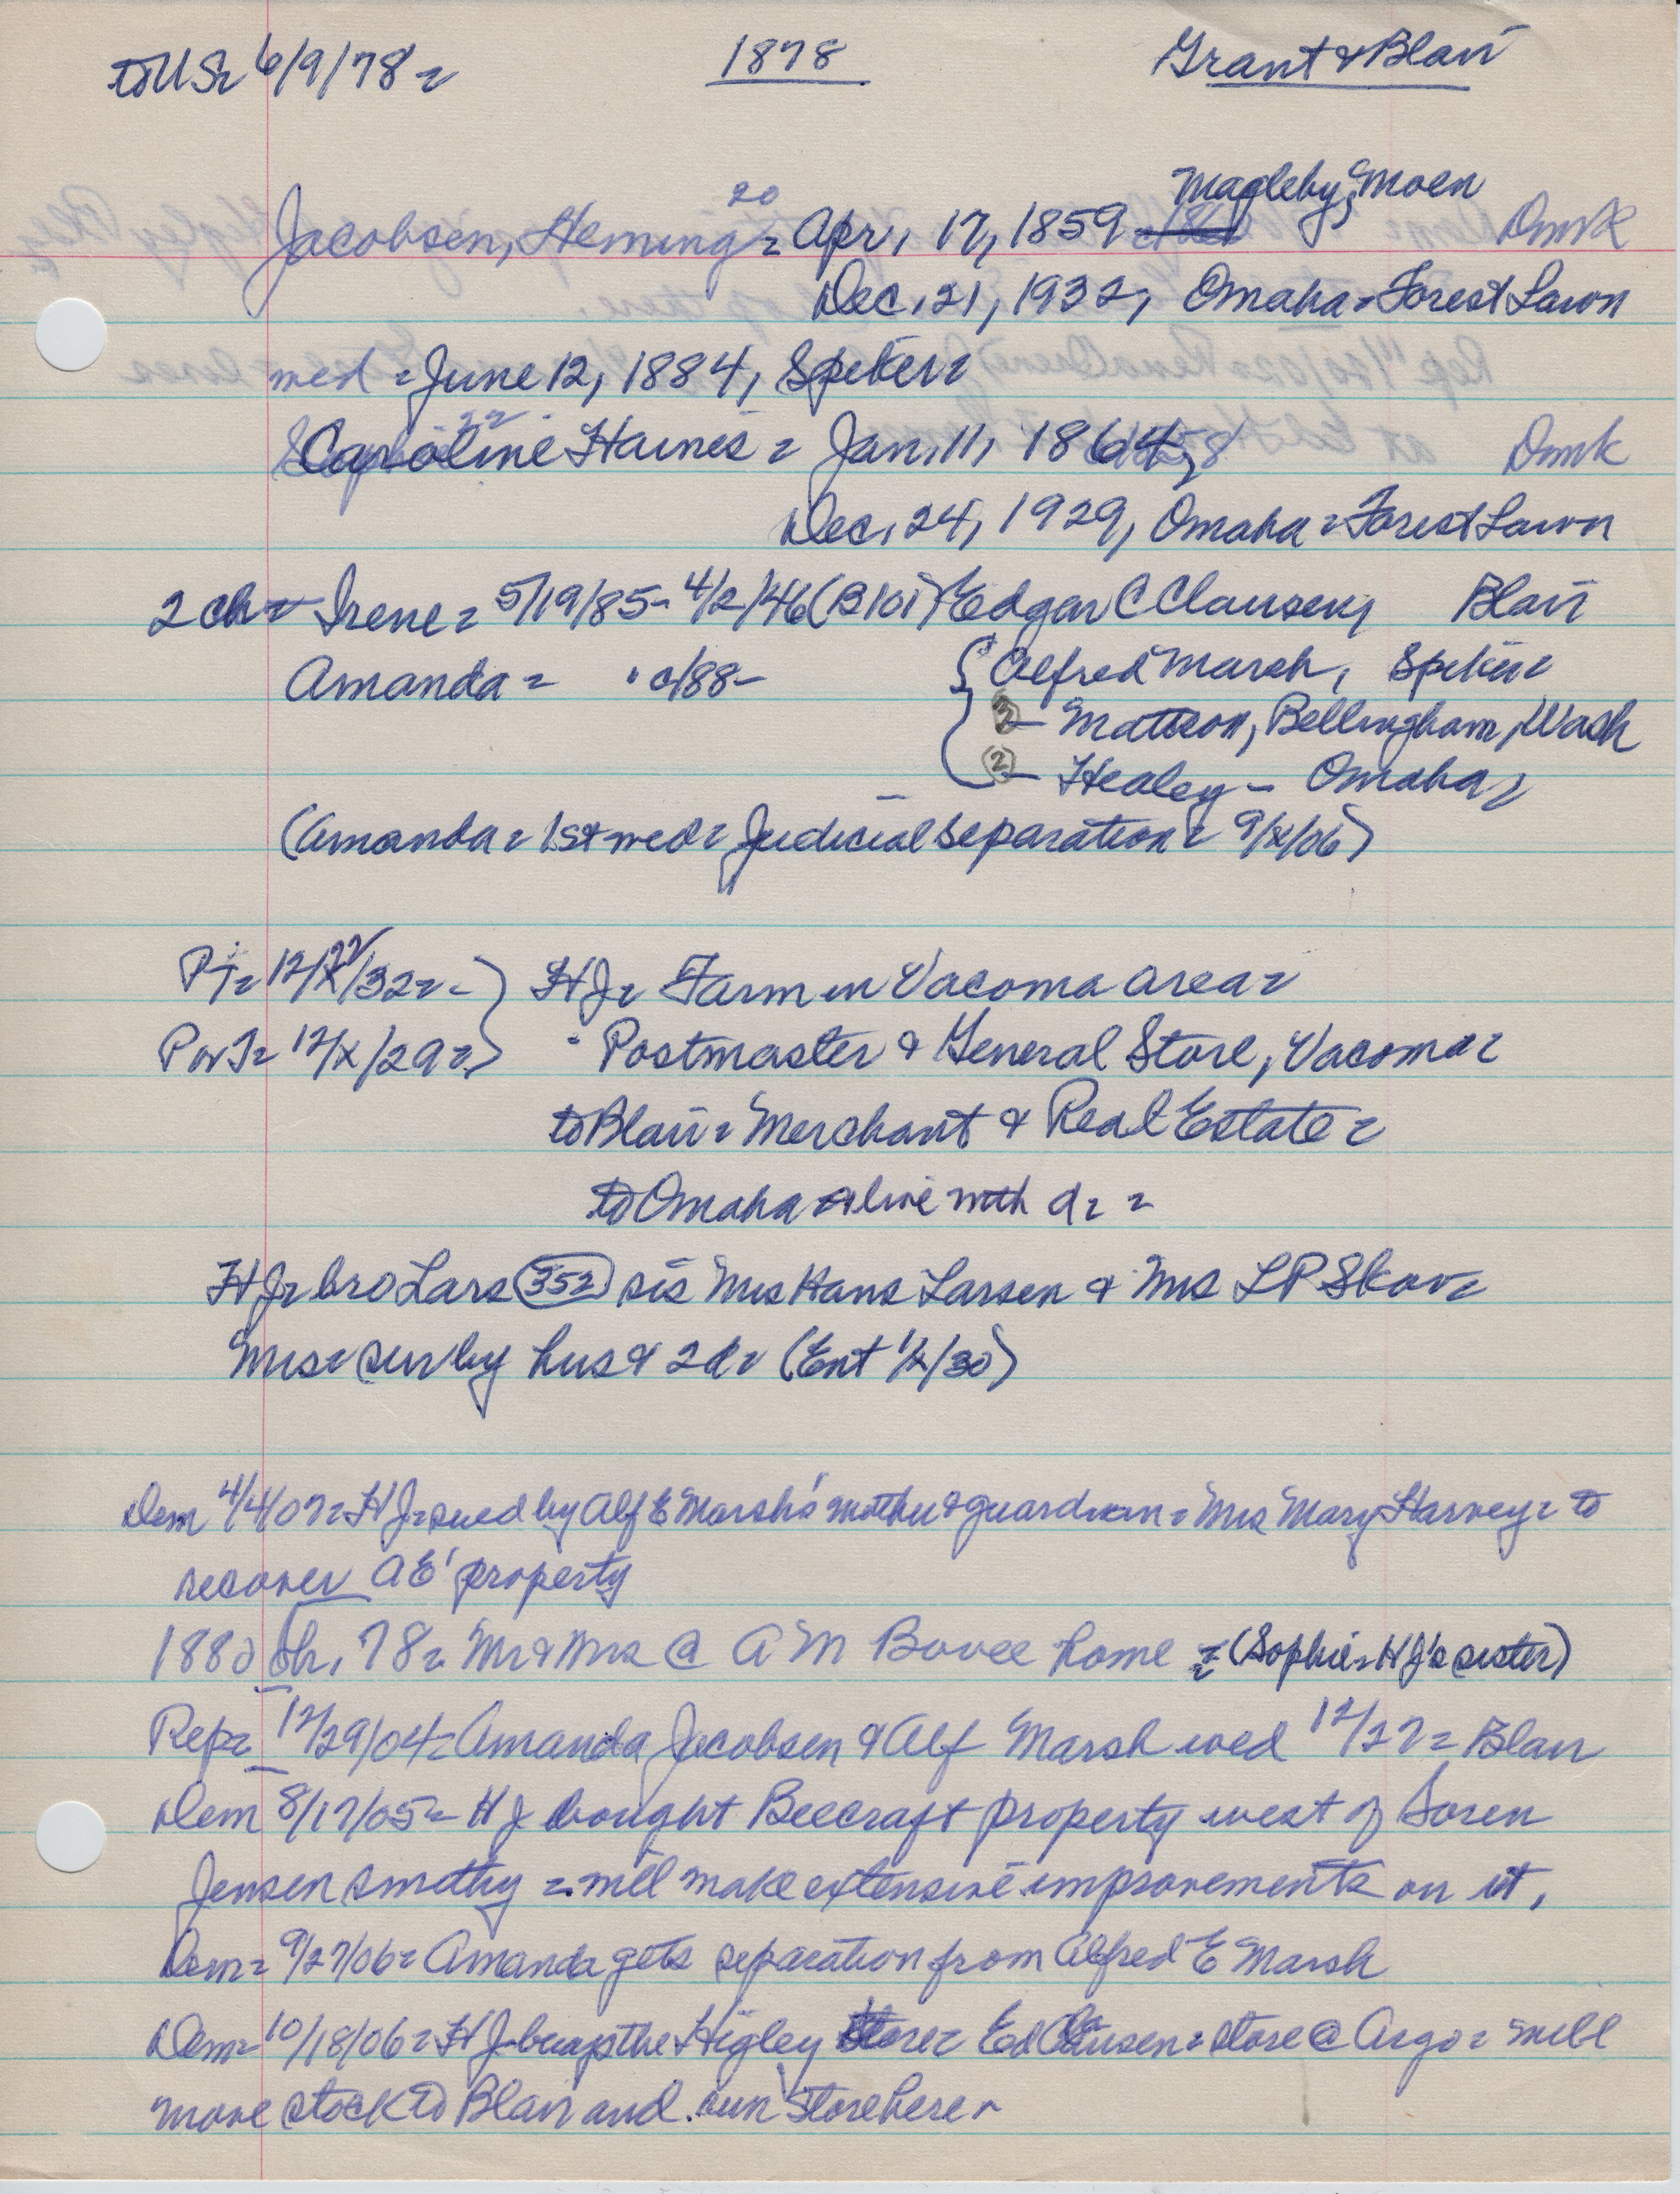 to US = 6/9/78 =
1878
Grant & Blair
Magleby, Moen
20
Jacobsen, Heming = Apr. 17, 1859 Dmrk
Dec. 21, 1932, Omaha = Forest Lawn
wed = June 12, 1884, Spiker =
Caroline Haines = Jan. 11, 1864, Dmrk
Dec. 24, 1929, Omaha = Forest Lawn
2 ch = Irene = 5/19/85 - 4/2/46 (B 101) Edgar C Clausen, Blair
Amanda = c/88 - { Alfred Marsh, Spiker =
— Mattson, Bellingham, Wash
(2) — Healey — Omaha,
(Amanda = 1st wed = Judicial separation = 9/x/06)
PT = 12/22/32 = - } HJ = Farm in Vacoma area =
PvT = 12/x/29 = } " Postmaster & General Store, Vacoma =
to Blair = Merchant & Real Estate =
to Omaha = live with d = =
HJ = bro Lars (352) sis Mrs Hans Larsen & Mrs L P Skov =
Mrs = sur by hus & 2 d = (Ent 1/x/30)
Dem 4/4/07 = HJ = sued by Alf E Marsh's mother & guardian = Mrs Mary Harvey = to
recover A E' property
1880 Sh. 78 = Mr & Mrs @ A M Bovee home = (Sophie = HJ's sister)
Rep = 12/29/04 = Amanda Jacobsen & Alf Marsh wed 12/27 = Blair
Dem 8/17/05 = HJ bought Beecraft property west of Soren
Jensen smithy = will make extensive improvements on it.
Dem = 9/27/06 = Amanda gets separation from Alfred E Marsh
Dem = 10/18/06 = HJ buys the Higley store = Ed Clausen = store @ Argo = will
move stock to Blair and run store here =